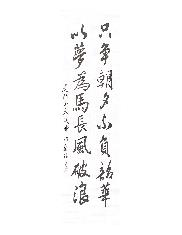 只争朝夕不負韶華
以夢為馬長風破浪